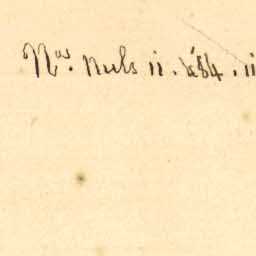 Nos. nuls ii. à 84. ii